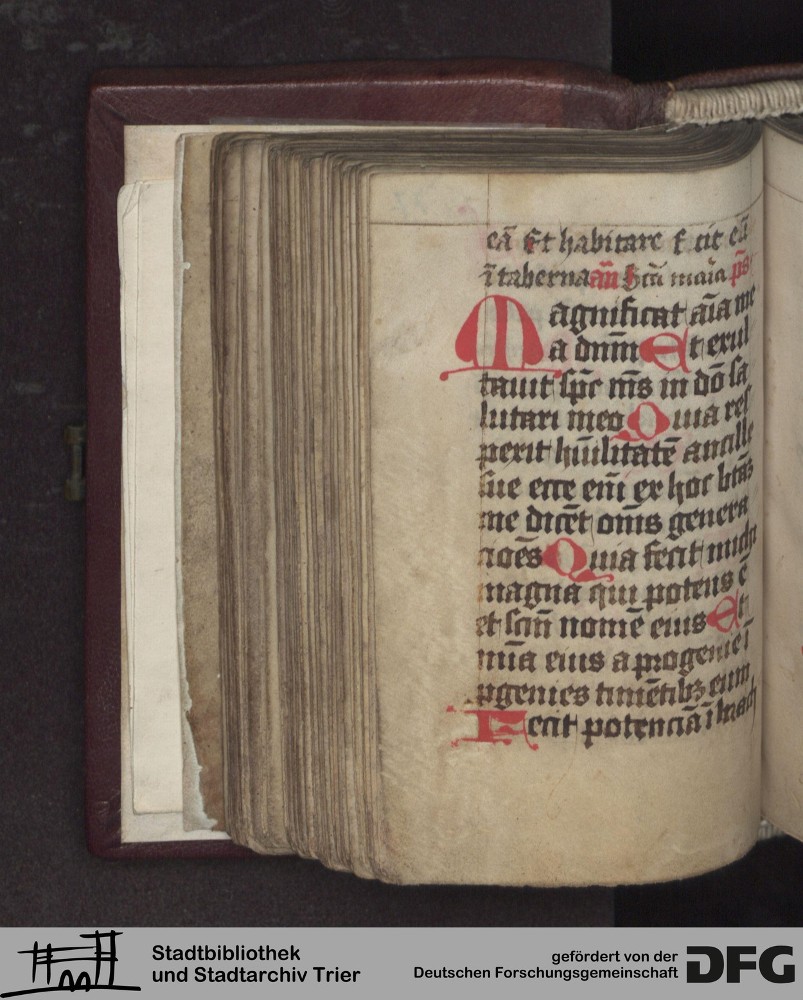 eā Et habitare f cit eā
ī taberna añ Scā maīa p̄s
Magnificat aīa me
a dnm̄ Et exul
tauit sp̄c m̄s in dō sa
lutari meo Quia res
pexit hūilitatē ancille
sue ecce em̄ ex hoc btāȝ
me dicēt om̄s genera
cōēs Quia fecit michi
magna qui potens ē
et scm̄ nomē eius Et
mīa eius a progenie ī
pgenies timētibȝ eum
Fecit potenciā ī brach
Stadtbibliothek
und Stadtarchiv Trier
gefördert von der
Deutschen Forschungsgemeinschaft
DFG